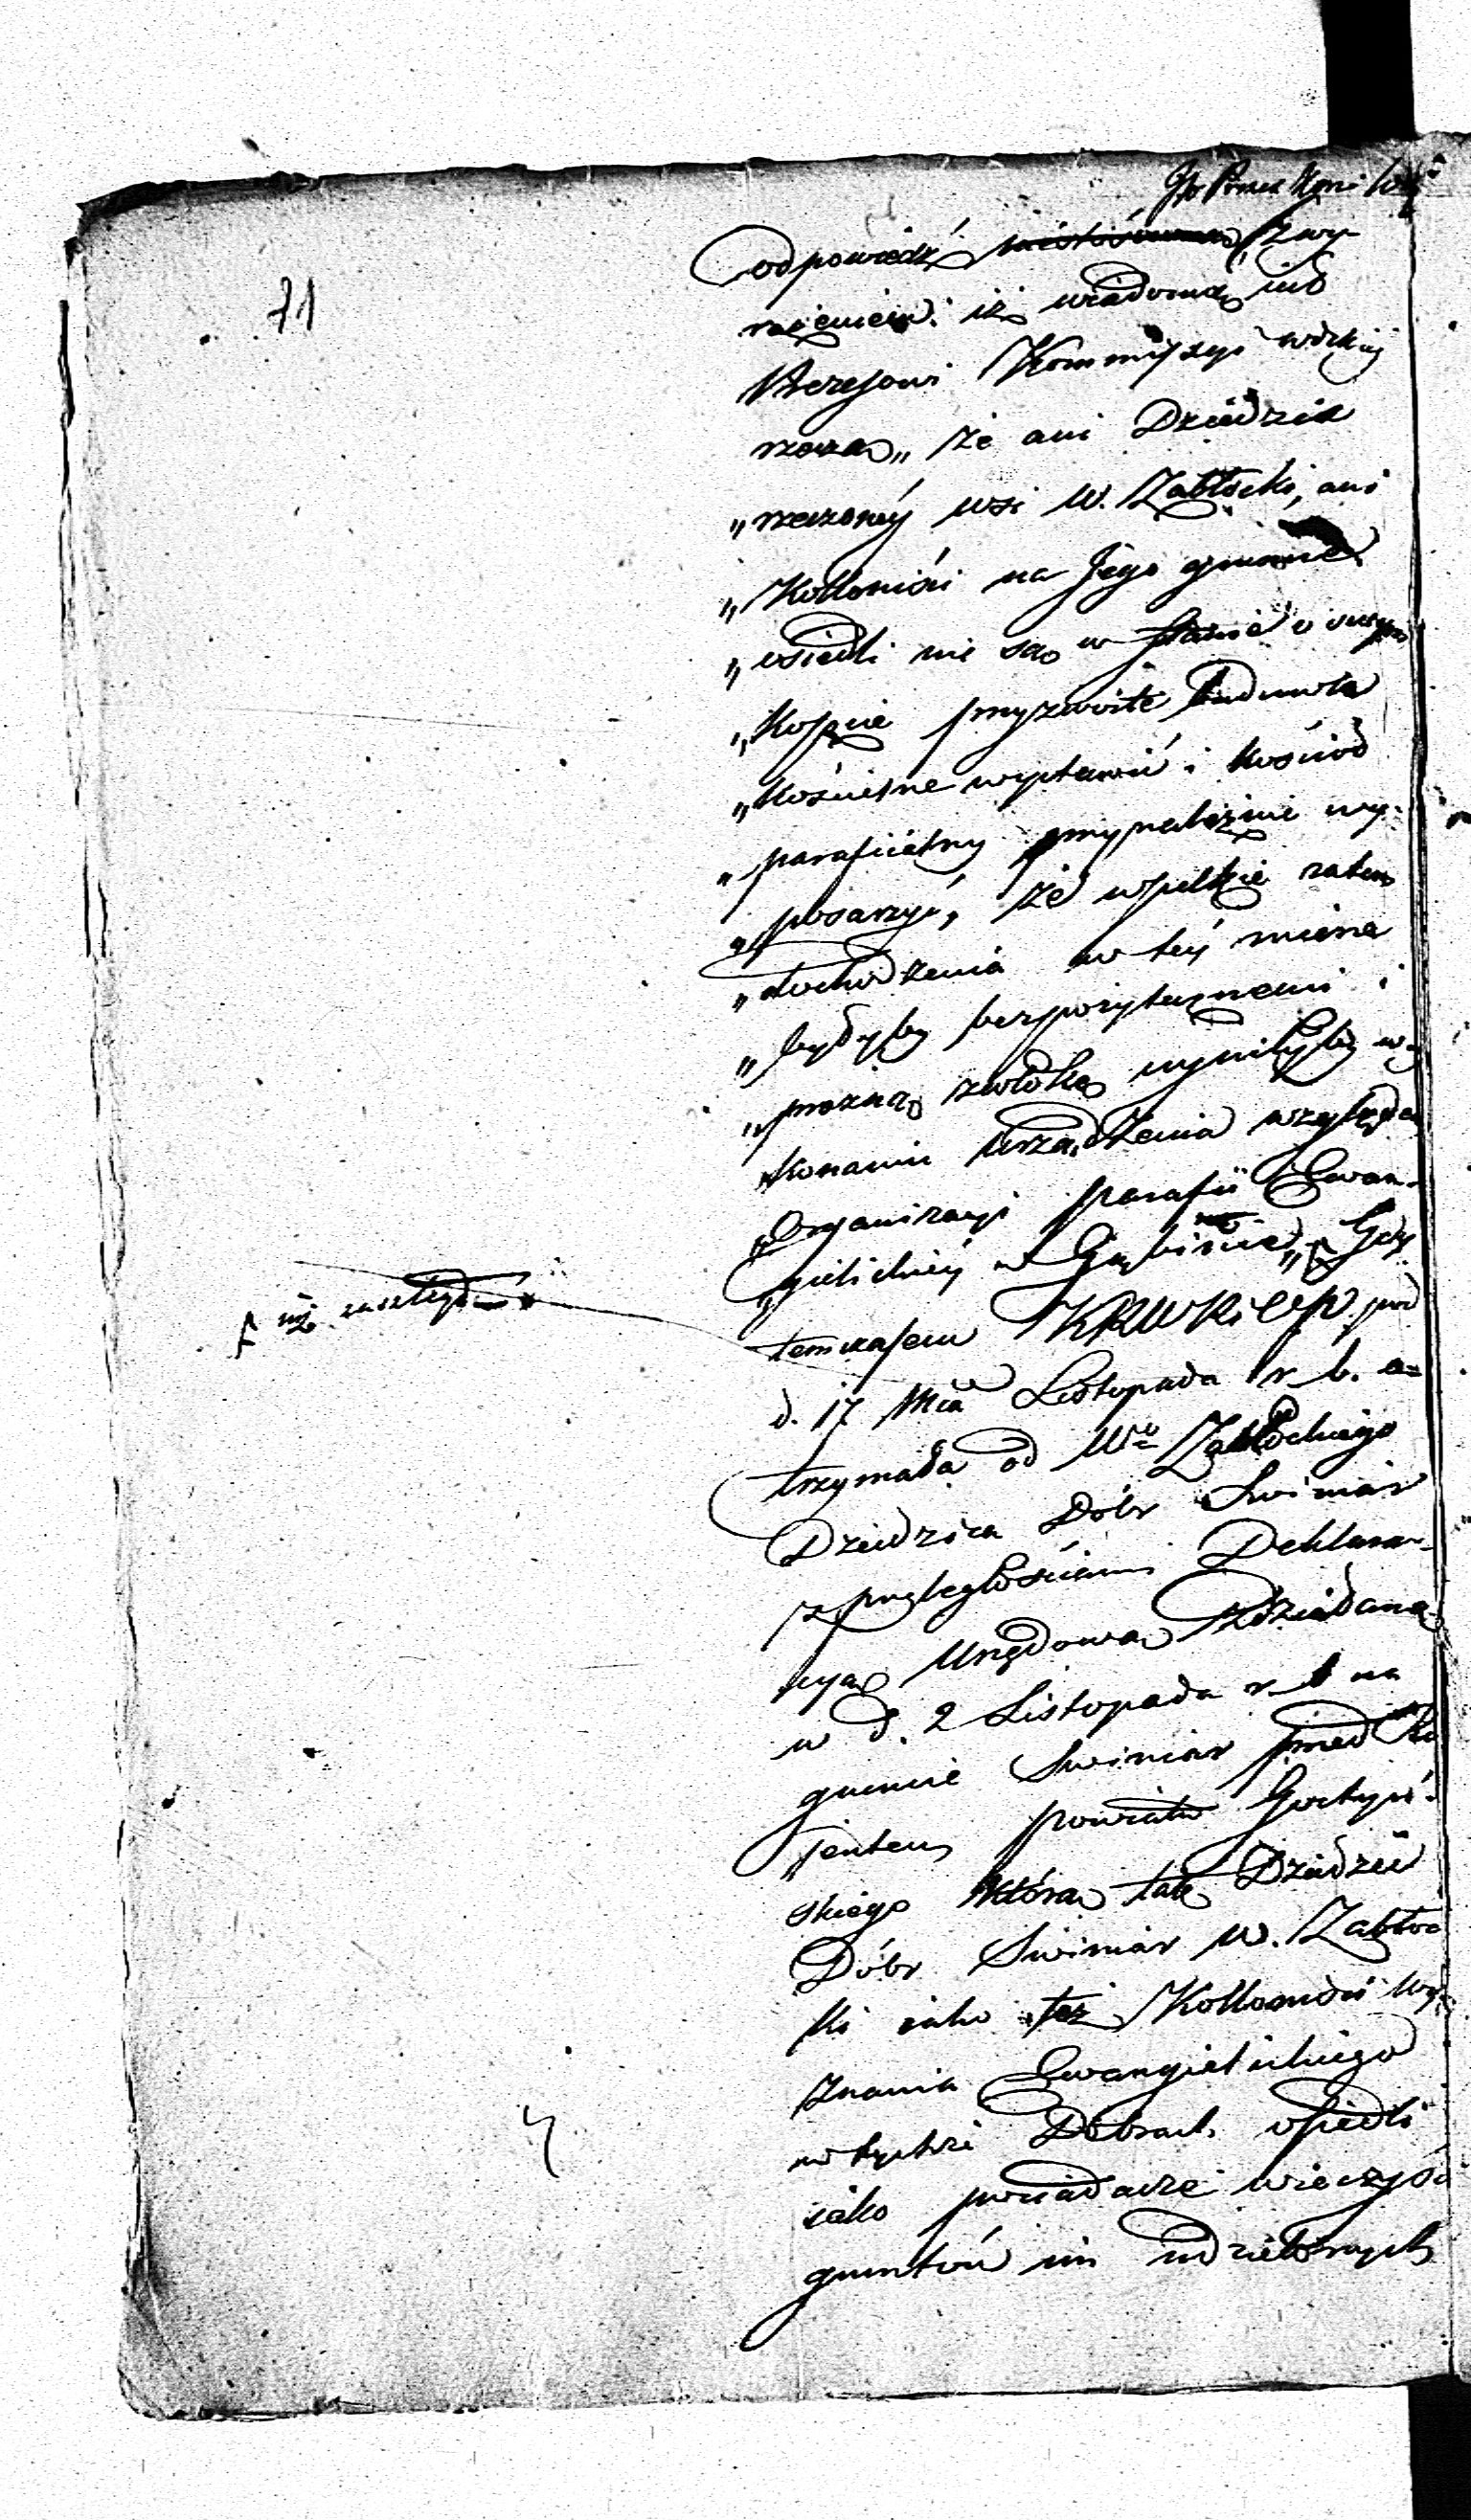 71
odpowiedź z wy-
rażeniem iż wiadomą iest
Prezesowi Kommissyi wdzkiéj
rzeczą „ że ani Dziedzic
„ rzeczonéy wsi W. Zabłocki, ani
„ Kolloniści na Jego gruncie
„ osiedli nie są w stanie o swym
„ koszcie przyzwoite budowle
„ kościelne wystawić i kościoł
„ parafiialny przynależnie wy-
„ posarzyć, że wszelkie zatem
„ dochodzenia w téy mierze
„ byłyby bezpożytecznemi i
„ prożną zwłokę czyniłyby wy
„ konaniu Urządzenia względem
„ Organizacyi parafii Ewan-
„ gielickiéy w Gąbinie „ Gdy
temczasem KRWRiOP pod
d. 17 Mca Listopada r. b. o-
trzymała od Wgo Zabłockiego
Dziedzica Dóbr Swiniar
z przyległościami Deklara-
cyą Urzędową zdziałaną
w d. 2 Listopada r. b na
gruncie Swiniar przed Re
jentem powiatu Gostyń-
skiego którą tak Dziedzic
Dóbr Swiniar W. Zabłoc
ki iako też Kolloniści Wy-
znania Ewangielickiego
w tychże Dobrach osiedli
iako posiadacze wieczyści
gruntów im udzielonych